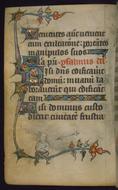 Uenientes aut uenient
cum exultacione: portãtes
manipulos suos
psalmus
isi dñs edificauerit
domũ: in uanũ la
borauerũt qui edificãt
eam
isi dominus custo
dierit ciuitatẽ frustra